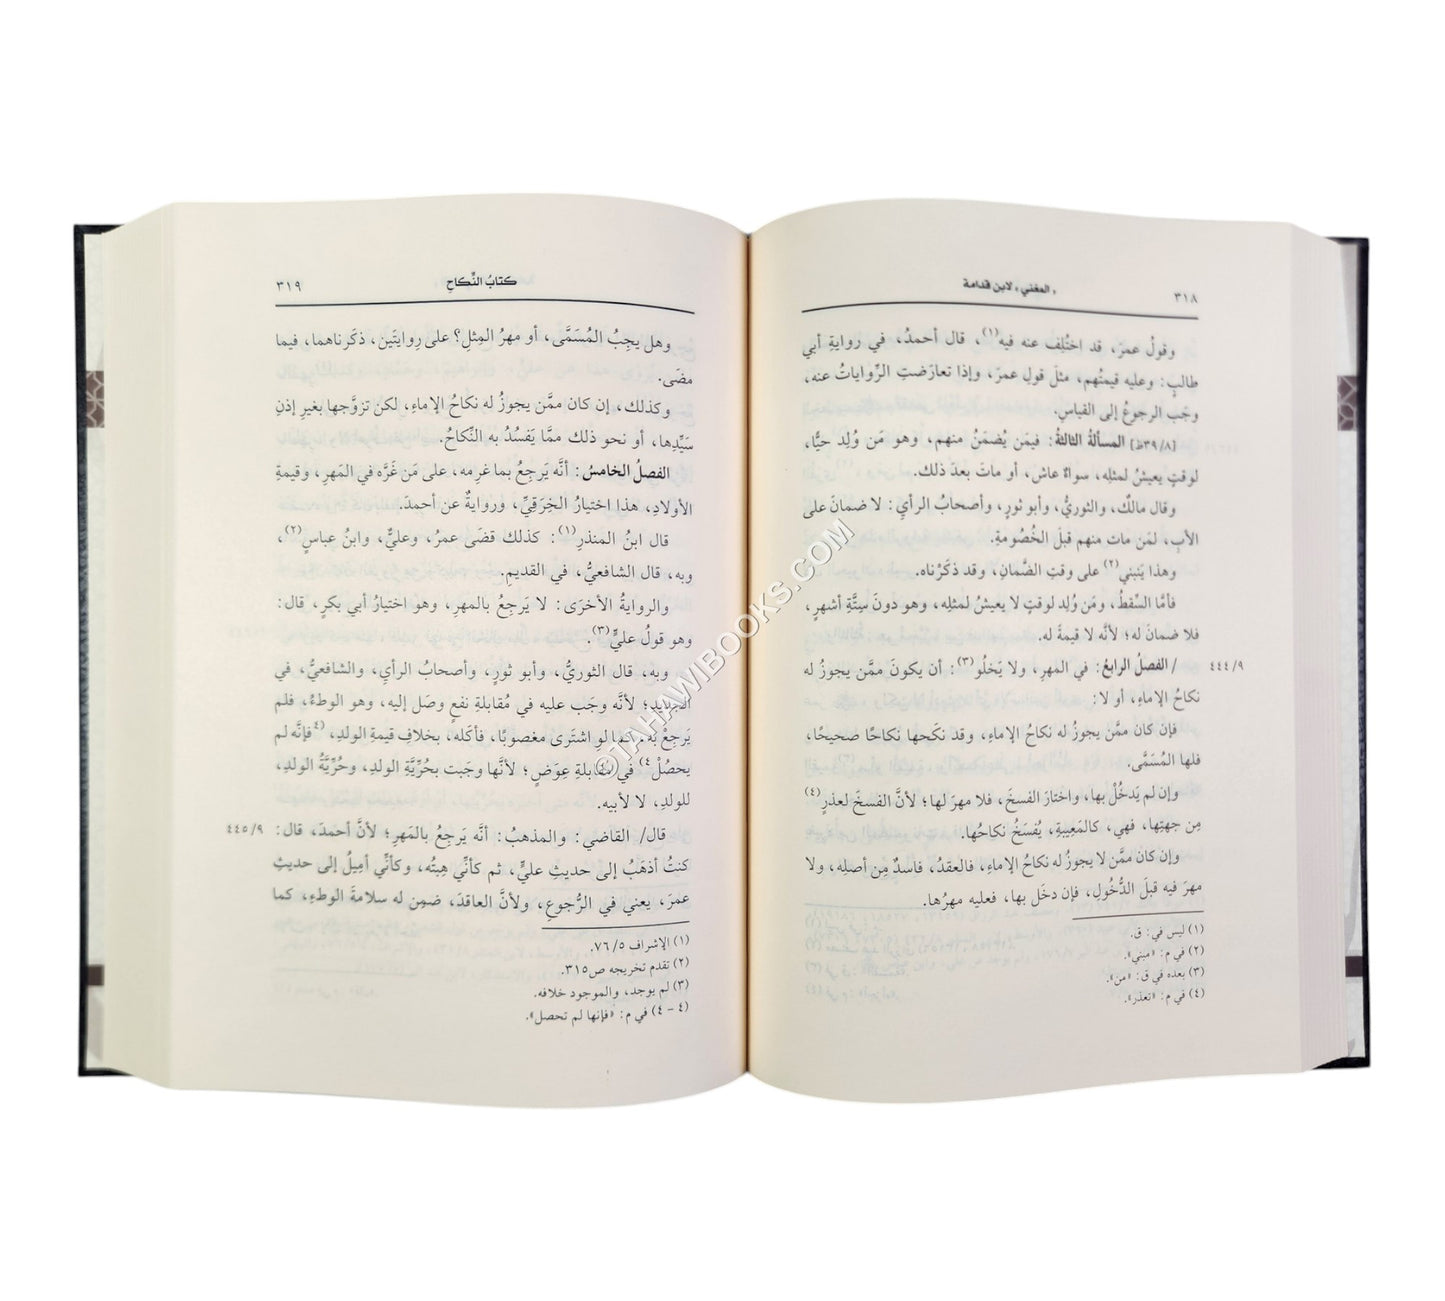 ٣١٨
«المغني» لابن قدامة
وقولُ عمرَ، قد اختُلِف عنه فيه(١)، قال أحمدُ، في روايةِ أبي
طالبٍ: وعليه قيمتُهم، مثلَ قولِ عمرَ، وإذا تعارَضتِ الرِّواياتُ عنه،
وجَب الرجوعُ إلى القياسِ.
[٣٩/٨ظ] المسألةُ الثالثةُ: فيمَن يُضمَنُ منهم، وهو مَن وُلِد حيًّا،
لوقتٍ يعيشُ لمثلِه، سواءٌ عاش، أو ماتَ بعدَ ذلك.
وقال مالكٌ، والثوريُّ، وأبو ثورٍ، وأصحابُ الرأيِ: لا ضمانَ على
الأبِ، لمَن مات منهم قبلَ الخُصُومةِ.
وهذا يَنبني(٢) على وقتِ الضَّمانِ، وقد ذكَرْناه.
فأمَّا السِّقطُ، ومَن وُلِد لوقتٍ لا يعيشُ لمثلِه، وهو دونَ سِتَّةِ أشهرٍ،
فلا ضمانَ له؛ لأنَّه لا قيمةَ له.
/ الفصلُ الرابعُ: في المهرِ، ولا يَخلُو(٣): أن يكونَ ممَّن يجوزُ له
٤٤٤/٩
نكاحُ الإماءِ، أو لا:
فإن كان ممَّن يجوزُ له نكاحُ الإماءِ، وقد نكَحها نكاحًا صحيحًا،
فلها المُسَمَّى.
وإن لم يَدخُلْ بها، واختارَ الفسخَ، فلا مهرَ لها؛ لأنَّ الفسخَ لعذرٍ(٤)
مِن جهتِها، فهي، كالمَعِيبةِ، يُفسَخُ نكاحُها.
وإن كان ممَّن لا يجوزُ له نكاحُ الإماءِ، فالعقدُ، فاسدٌ مِن أصلِه، ولا
مهرَ فيه قبلَ الدُّخُولِ، فإن دخَل بها، فعليه مهرُها.
(١) ليس في: ق.
(٢) في م: «مبني».
(٣) بعده في ق: «من».
(٤) في م: «تعذر».
كتابُ النِّكاحِ
٣١٩
وهل يجِبُ المُسَمَّى، أو مهرُ المِثلِ؟ على رِوايتَين، ذكَرناهما، فيما
مضَى.
وكذلك، إن كان ممَّن يجوزُ له نكاحُ الإماءِ، لكن تزوَّجها بغيرِ إذنِ
سَيِّدِها، أو نحوِ ذلك ممَّا يَفسُدُ به النِّكاحُ.
الفصلُ الخامسُ: أنَّه يَرجِعُ بما غرِمه، على مَن غَرَّه في المَهرِ، وقيمةِ
الأولادِ، هذا اختيارُ الخِرَقِيِّ، وروايةٌ عن أحمدَ.
قال ابنُ المنذرِ(١): كذلك قضَى عمرُ، وعليٌّ، وابنُ عباسٍ(٢)،
وبه، قال الشافعيُّ، في القديمِ.
والروايةُ الأخرَى: لا يَرجِعُ بالمهرِ، وهو اختيارُ أبي بكرٍ، قال:
وهو قولُ عليٍّ(٣).
وبه، قال الثوريُّ، وأبو ثورٍ، وأصحابُ الرأيِ، والشافعيُّ، في
الجديدِ؛ لأنَّه وجَب عليه في مُقابلةِ نفعٍ وصَل إليه، وهو الوطءُ، فلم
يَرجِعْ به، كما لو اشتَرى مغصوبًا، فأكَله، بخلافِ قيمةِ الولدِ، (٤فإنَّه لم
يحصُلْ٤) في مُقابلةِ عِوَضٍ؛ لأنَّها وجَبت بحُرِّيَّةِ الولدِ، وحُرِّيَّةُ الولدِ،
للولدِ، لا لأبيه.
قال/ القاضي: والمذهبُ: أنَّه يَرجِعُ بالمَهرِ؛ لأنَّ أحمدَ، قال:
٤٤٥/٩
كنتُ أذهَبُ إلى حديثِ عليٍّ، ثم كأنِّي هِبتُه، وكأنِّي أمِيلُ إلى حديثِ
عمرَ، يعني في الرُّجوعِ، ولأنَّ العاقدَ، ضمِن له سلامةَ الوطءِ، كما
(١) الإشراف ٧٦/٥.
(٢) تقدم تخريجه ص٣١٥.
(٣) لم يوجد، والموجود خلافه.
(٤ - ٤) في م: «فإنها لم تحصل».
©JAHAWIBOOKS.COM